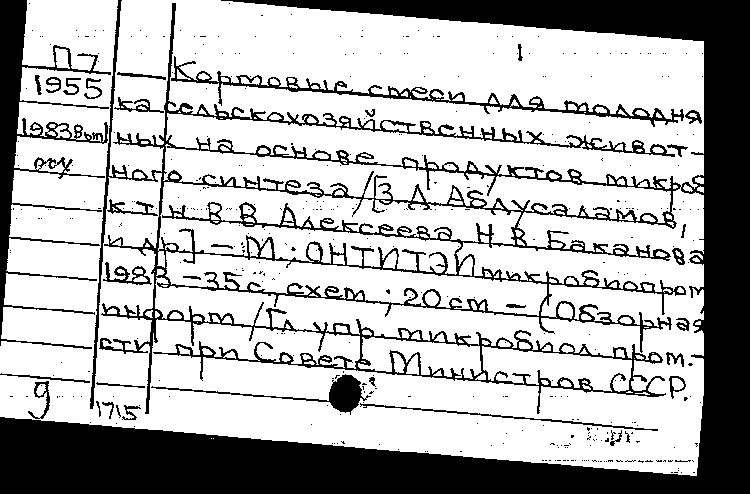 1
П7
1955
1983 Вып
Кормовые смеси для молодня
ка сельскохозяйственных живот-
ных на основе продуктов микроб
ного синтеза/[З.Д. Абдусаламов,
к.т.н. В.В. Алексеева, Н.В. Баканова
и др] – М.: ОНТИТЭИмикробиопром,
1983 – 35с., схем ; 20 см – (Обзорная
информ /Гл упр. микробиол. пром.-
сти при Совете Министров СССР.
9
1715